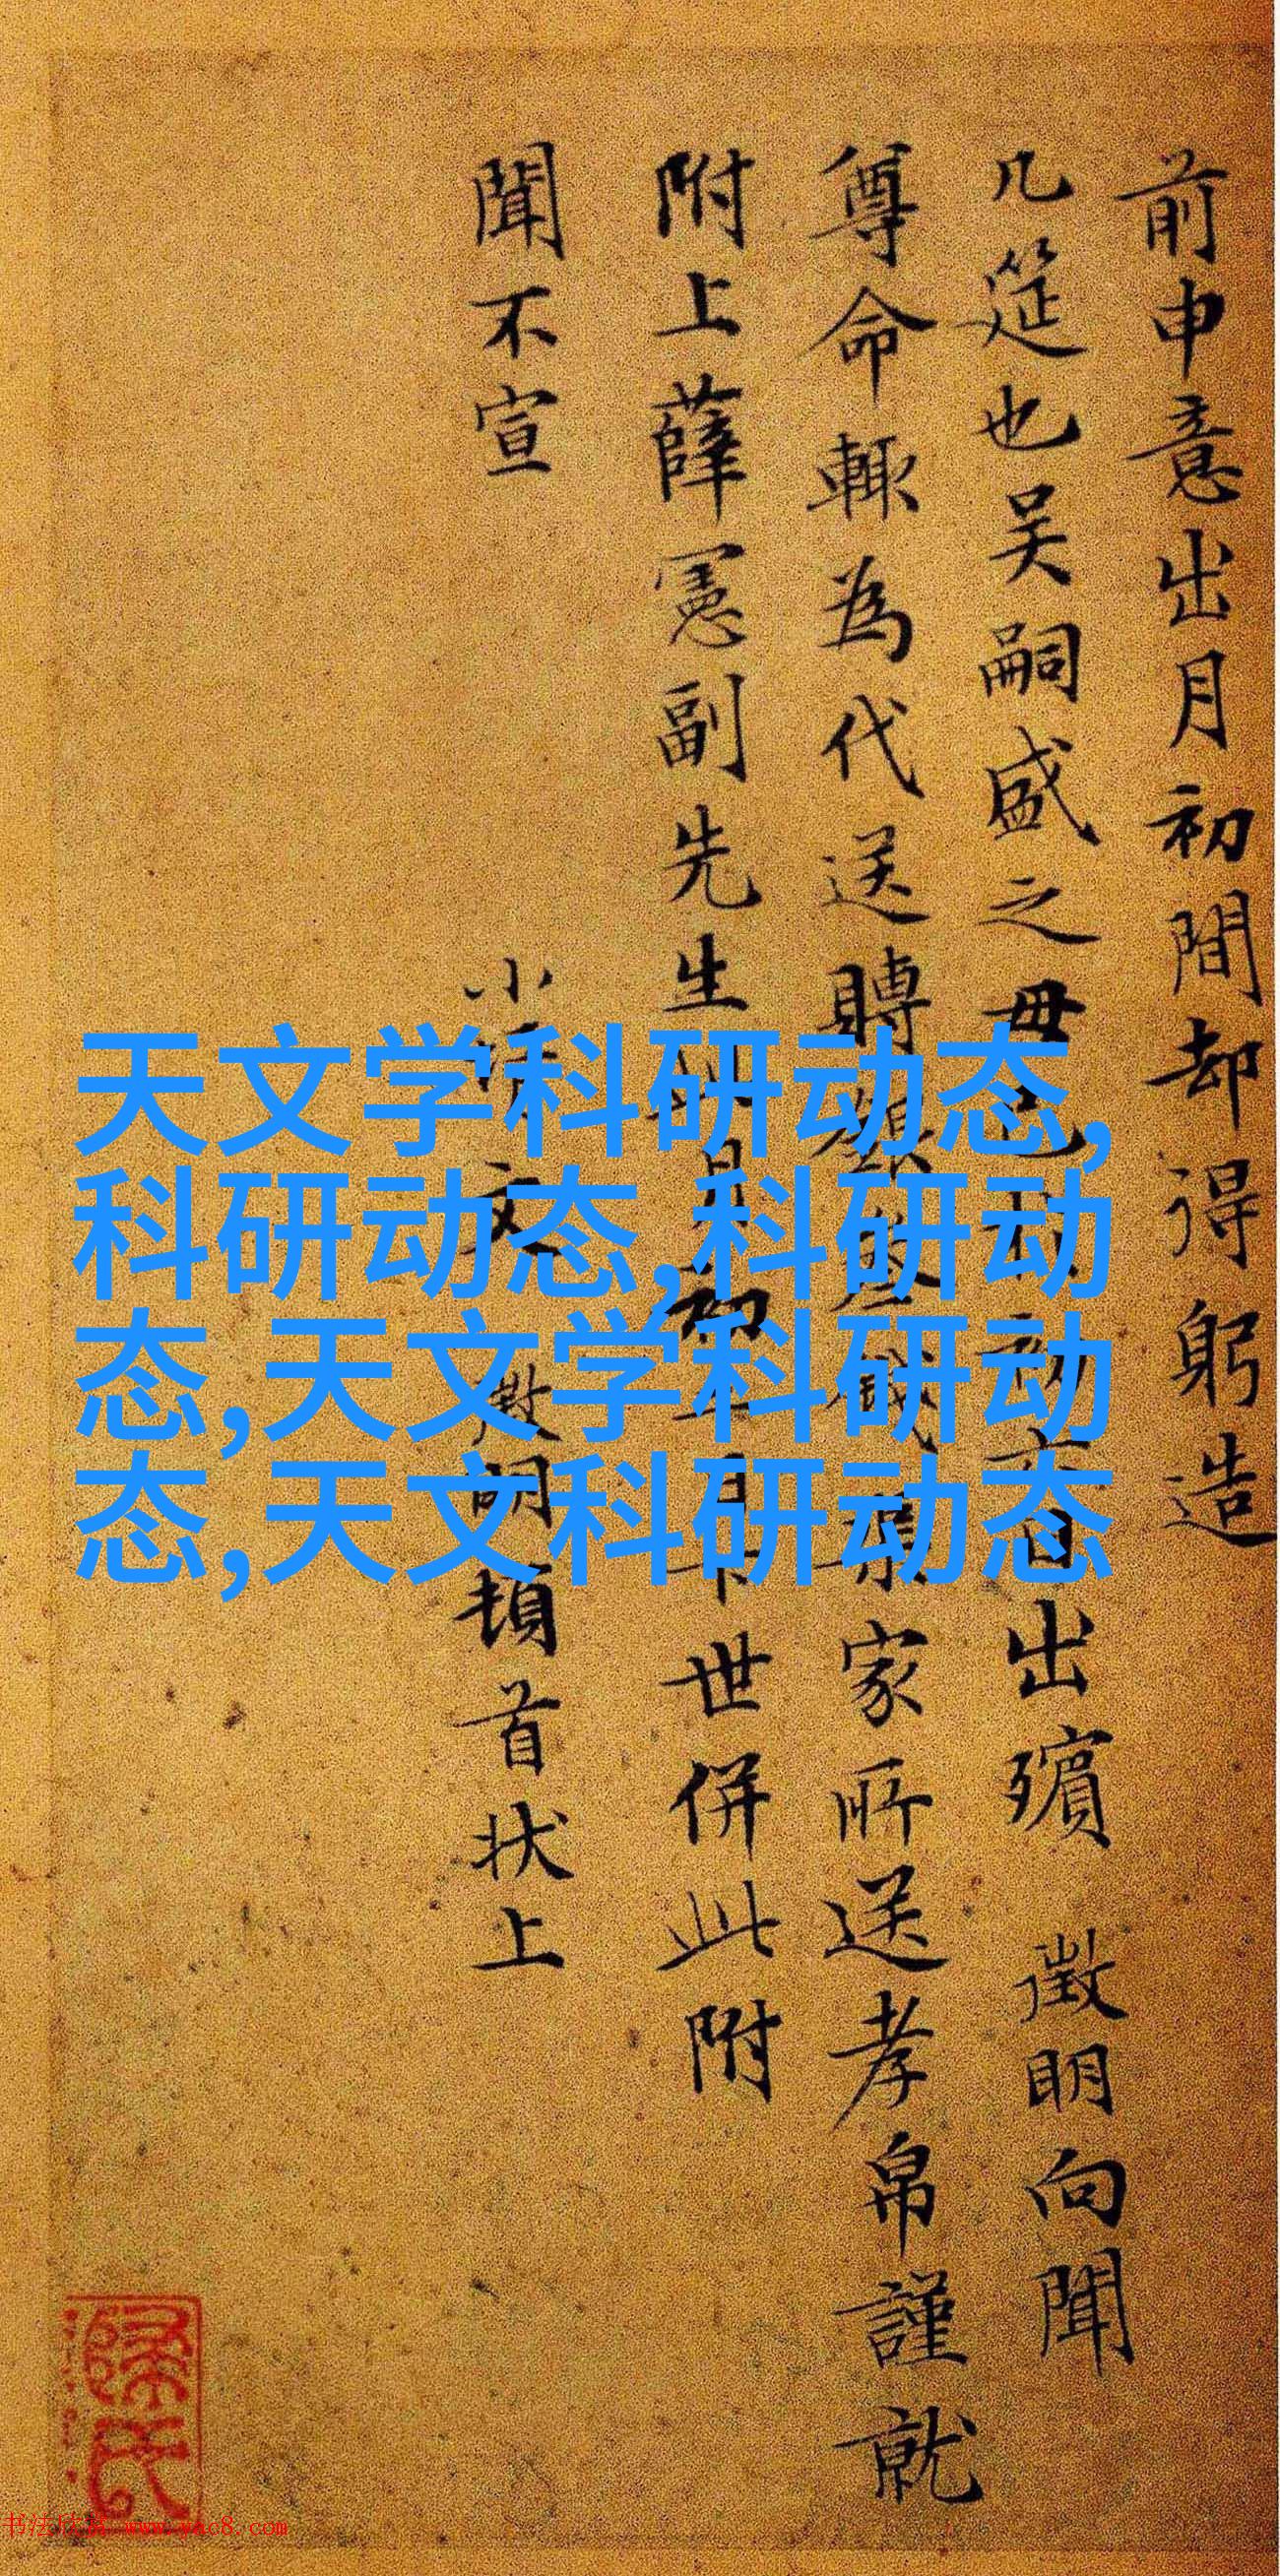 前申意出月初間却得躬造
几筵也吴嗣盛之毋 出殯 徵明向聞
尊命輙為代送轉 家所送孝帛謹就
附上薛憲副先生 月初 世併此附
聞不宣
小 文徵明頓首状上
天文学科研动态,
科研动态,科研动
态,天文学科研动
态,天文科研动态
书法欣赏 www.yac8.com